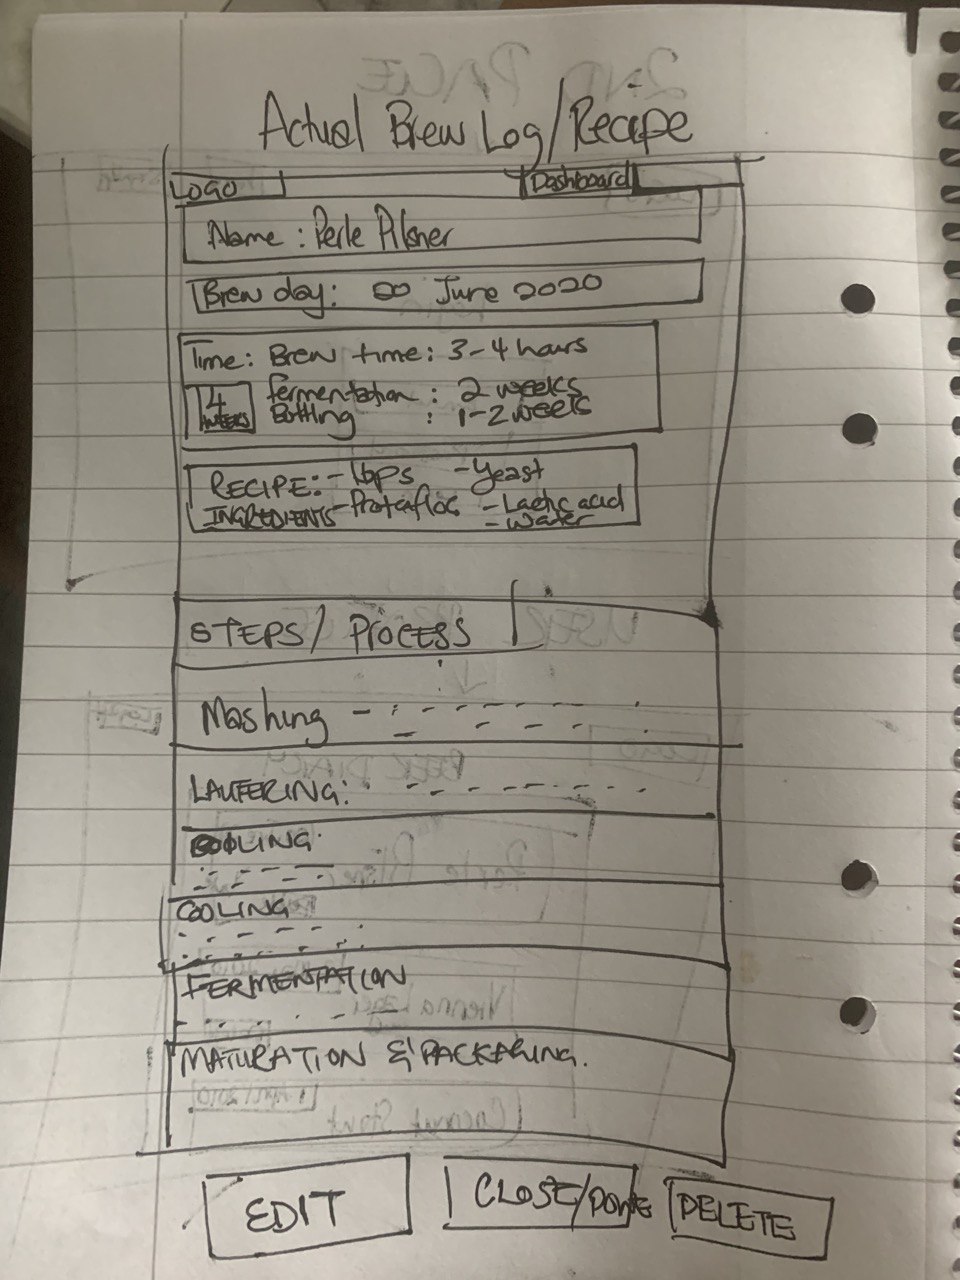 Actual Brew Log/Recipe
LOGO
Dashboard
Name : Perle Pilsner
Brew day: 20 June 2020
Time: Brew time: 3-4 hours
4 WEEKS
Fermentation : 2 weeks
Bottling : 1-2 weeks
RECIPE: - Hops - Yeast
INGREDIENTS - Protafloc - Lactic acid
- Water
STEPS/ PROCESS
Mashing -
LAUTERING:
COOLING
FERMENTATION
MATURATION & PACKAGING.
EDIT
CLOSE/DONE
DELETE